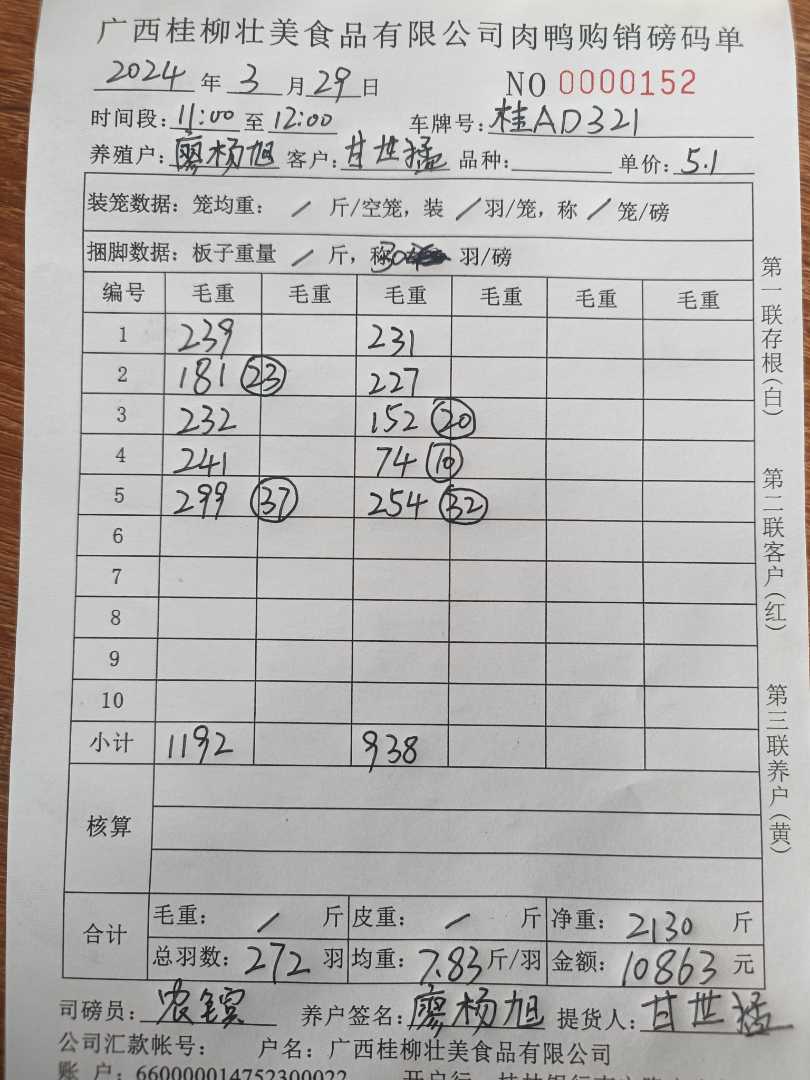 广西桂柳壮美食品有限公司肉鸭购销磅码单
2024 年 3 月 29 日 NO 0000152
时间段: 11:00 至 12:00 车牌号: 桂AD321
养殖户: 廖杨旭 客户: 甘世猛 品种: 单价: 5.1
装笼数据: 笼均重: / 斤/空笼, 装 / 羽/笼, 称 / 笼/磅
捆脚数据: 板子重量 / 斤, 称30 羽/磅
编号 毛重 毛重 毛重 毛重 毛重 毛重
1 239 231
2 181 23 227
3 232 152 20
4 241 74 10
5 299 37 254 32
6
7
8
9
10
小计 1192 938
核算
合计 毛重: / 斤 皮重: / 斤 净重: 2130 斤
总羽数: 272 羽 均重: 7.83 斤/羽 金额: 10863 元
司磅员: 农 养户签名: 廖杨旭 提货人: 甘世猛
公司汇款帐号: 户名: 广西桂柳壮美食品有限公司
账 户: 660000014752300022
第一联存根(白)
第二联客户(红)
第三联养户(黄)